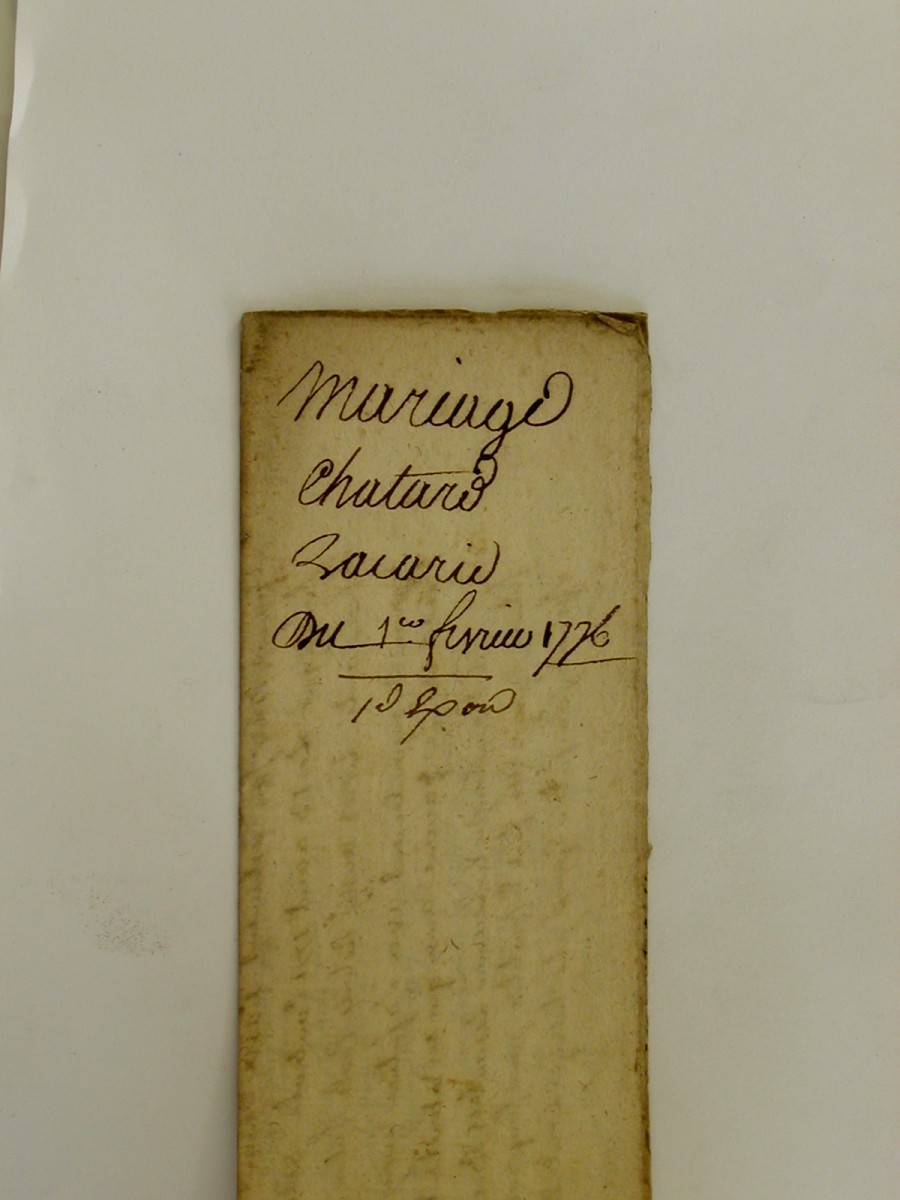 Mariage
Chatard
Zacarie
Du 1er fevrier 1776